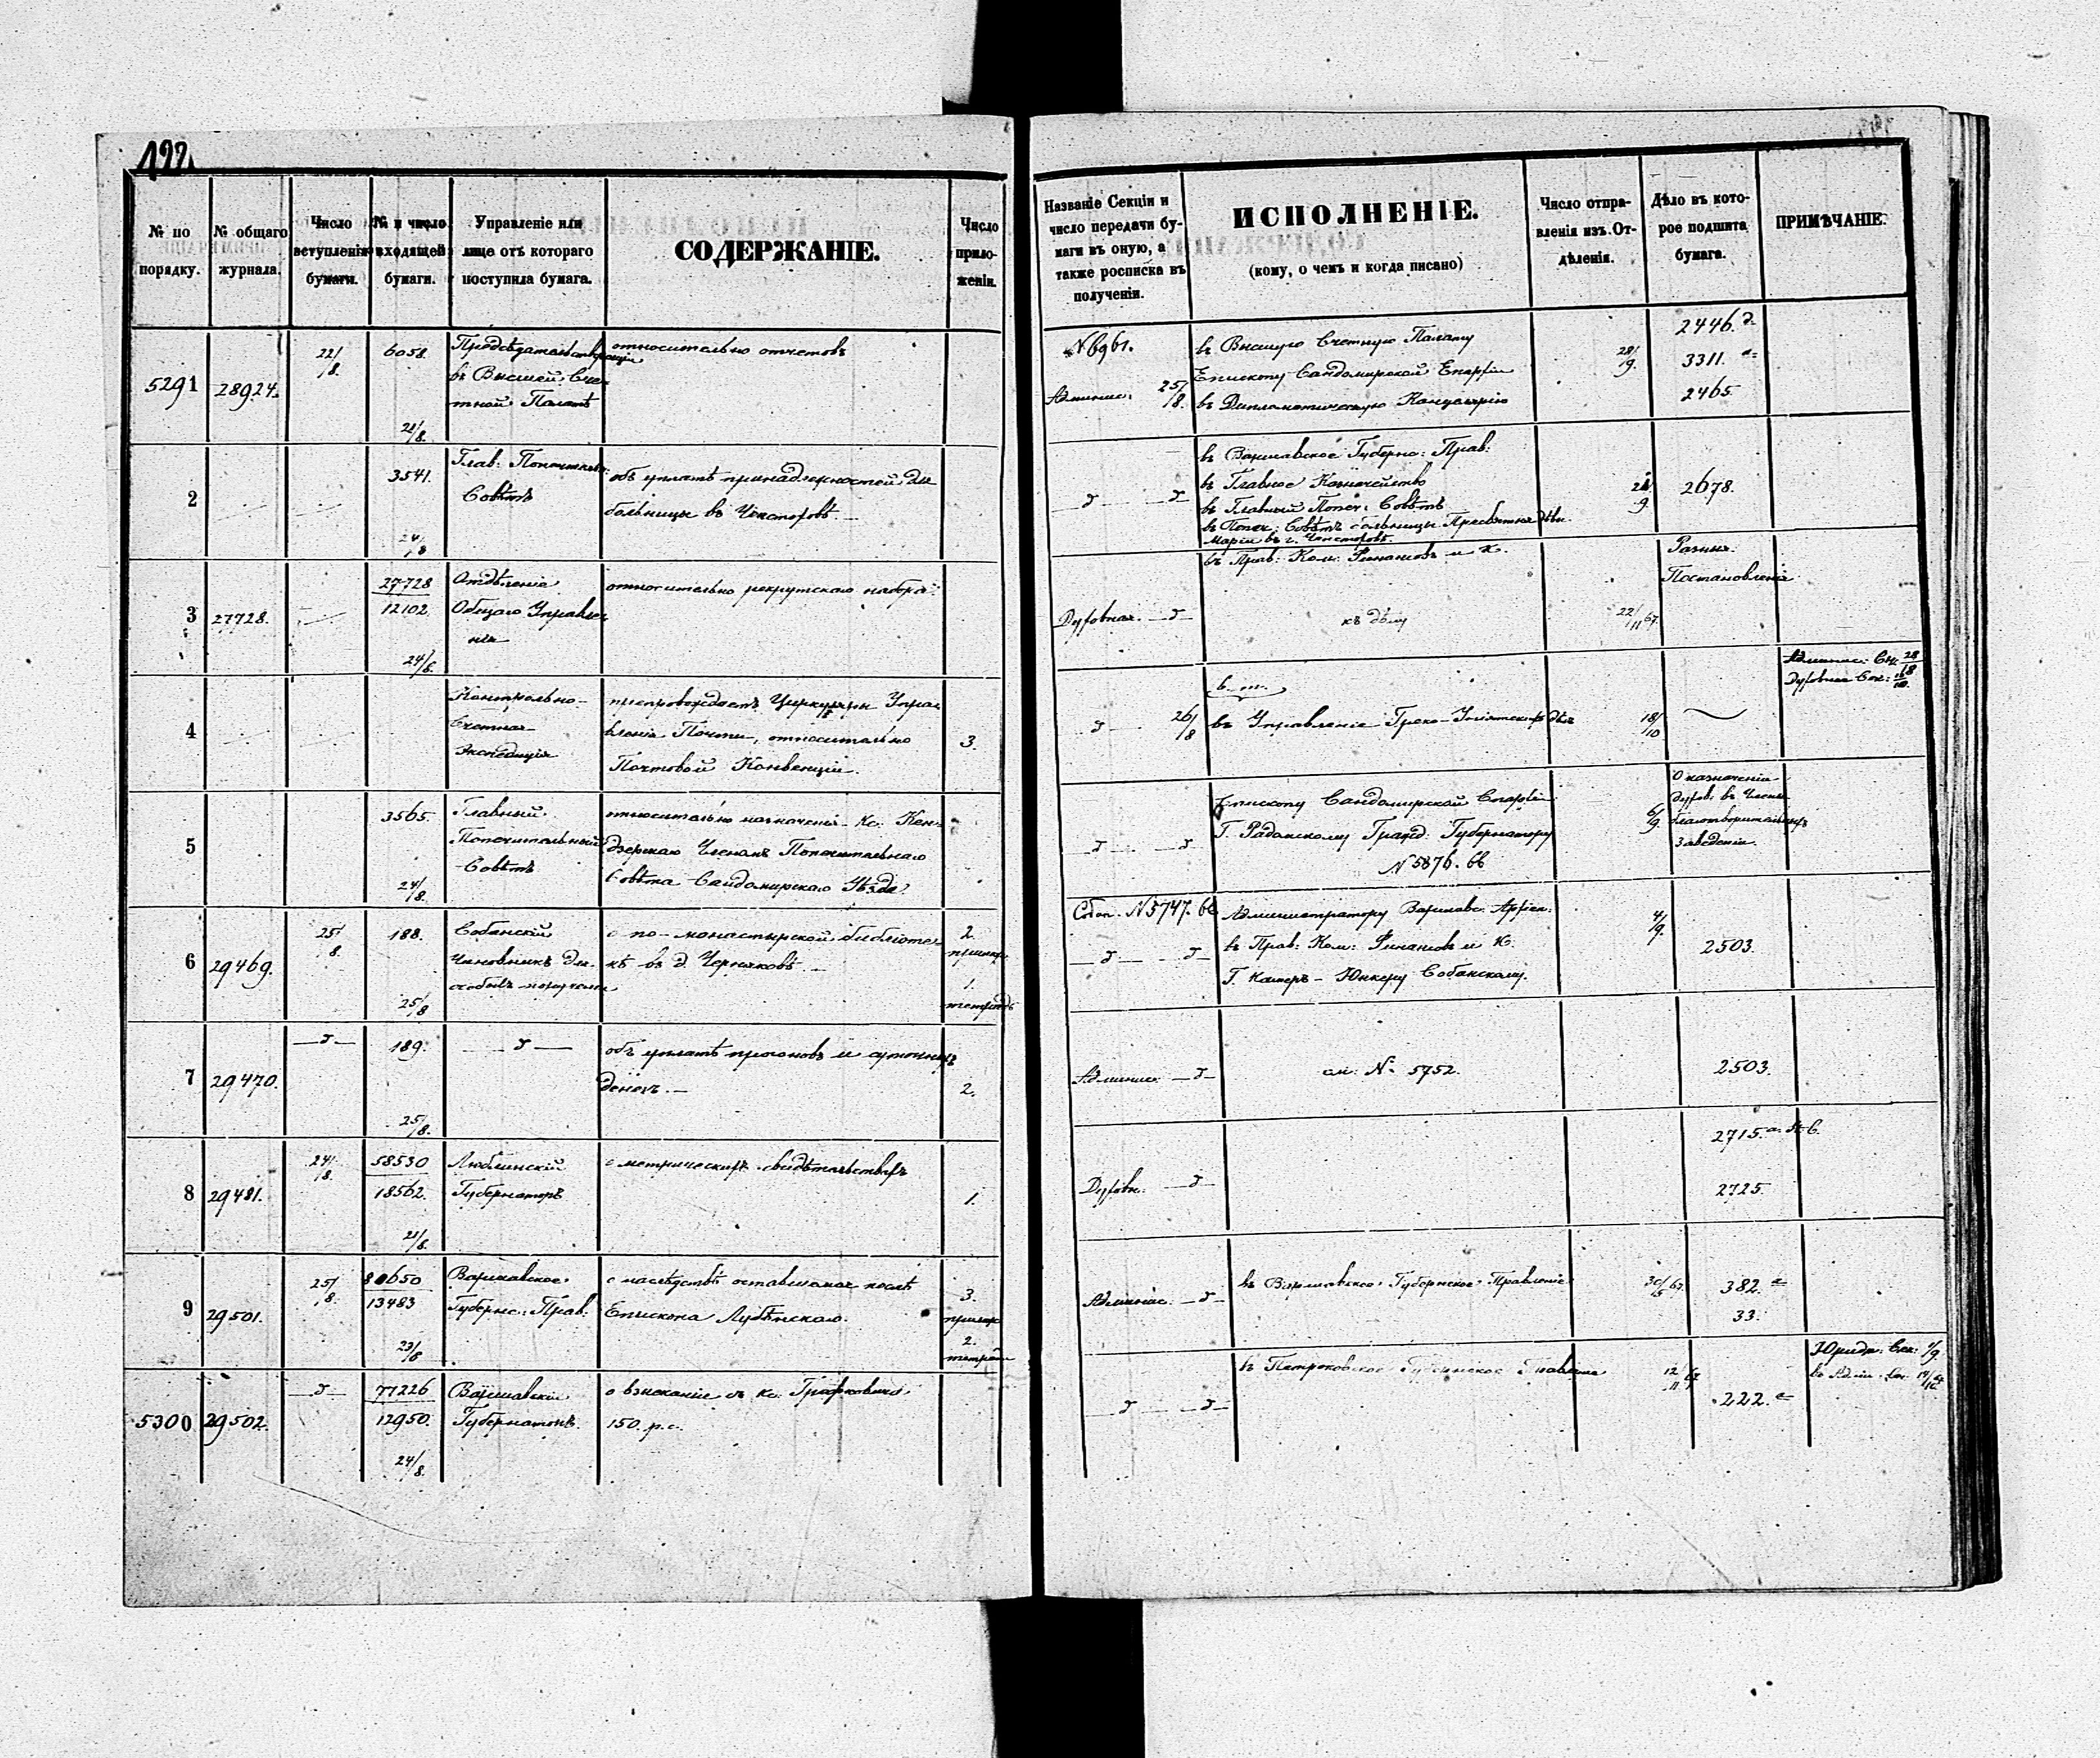 122
№ по порядку.
№ общаго журнала.
Число вступленія бумаги.
№ и число входящей бумаги.
Управленіе или лице отъ котораго поступила бумага.
СОДЕРЖАНІЕ.
Число прило-
женіи.
Названіе Секціи и
число передачи бу-
маги въ оную, а
также росписка въ
полученіи.
ИСПОЛНЕНІЕ.
(кому, о чемъ и когда писано)
Число отпра-
вленія изъ От-
дѣленія.
Дѣло въ кото-
рое подшита
бумага.
ПРИМѢЧАНІЕ.
5291
28924.
22/8.
6058.
21/8.
въ Высшей Сче-
тной Палатѣ
относительно отчетовъ
№ 6961.
Админис. 25/8.
въ Высшую Счетную Палату
Епископу Сандомирской Епархіи
въ Дипломатическую Канцелярію
28/9.
2446. д.
3311. а
2465.
2
3541.
24/8
Глав: Попечительн:
Совѣтъ
объ уплатѣ принадлежностей для
больницы въ Ченстоховѣ.
въ Варшавское Губерн: Прав:
въ Главное Казначейство
въ Главный Попеч: Совѣтъ
въ Попеч: Совѣтъ больницы Пресвятыя Дѣвы
Маріи въ г. Ченстоховѣ.
2678.
3
27728.
27728
12102.
24/8.
Отдѣленіе
Общаго Управле
нія
относительно рекрутскаго набора.
Духовная. д
въ Прав: Ком: Финансовъ и К.
къ дѣлу
22/11 67.
Разныя.
Постановленія
4
Контрольно-
Счетная
Экспедиція
препровождаетъ Циркуляры Управ
вленія Почты, относительно
Почтовой Конвенціи.
3.
д 26/8
въ Управленіе Греко-Уніятскихъ дѣлъ
18/10
Админис: Сек: 28/8
Духовная Сек:
5
3565.
24/8.
Главный
Попечительный
Совѣтъ
относительно назначенія Кс. Кен-
дзерскаго Членомъ Попечительнаго
Совѣта Сандомирскаго Уѣзда.
Епископу Сандомирской Епархіи
Г. Радомскому Гражд: Губернатору
№ 5876. 66
6/9.
О назначеніи
духов. въ Члены
благотворительныхъ
заведеній.
6
29469.
25/8.
188.
25/8
Собанскій
Чиновникъ для
особыхъ порученій
о по-монастырской библіоте-
кѣ въ д. Черняковѣ.
2.
1.
тетрадь
№ 5747. 66
Администратору Варшавс: Архіеп:
въ Прав: Ком: Финансовъ и К.
Г. Камеръ-Юнкеру Собанскому.
4/9.
2503.
7
29470.
д
189.
25/8.
д
объ уплатѣ прогоновъ и суточныхъ
денегъ.
2.
Админис: д
см. № 5752.
2503.
8
29481.
24/8.
58530
18562.
21/8.
Люблинскій
Губернаторъ
о метрическихъ свидѣтельствахъ
1.
Духовн. д
2715.
2725.
9
29501.
25/8.
80650
13483
23/8
Варшавское
Губернс: Прав:
о наслѣдствѣ оставшемся послѣ
Епископа Лубѣнскаго.
3.
2.
Админис. д
въ Варшавское Губернское Правленіе
382. а
33.
5300
29502.
д
71226
12950.
24/8.
Варшавскій
Губернаторъ.
о взысканіи съ кс.
150. р. с.
д д
въ Петроковское Губернское Правленіе
12/11 67
222. а
Юридич. Сек: 1/9.